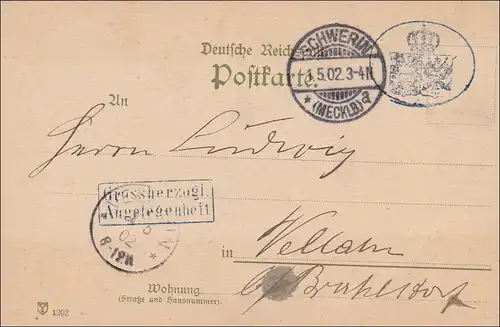 Deutsche Reichs
Postkarte.
SCHWERIN
1.5.02.3-4N
* (MECKLB) a
An
Herrn Ludwig
Grossherzogl.
Angelegenheit
02
8-12N
*
in Wellahn
b/ Brahlstorf
Wohnung
(Straße und Hausnummer).
1202